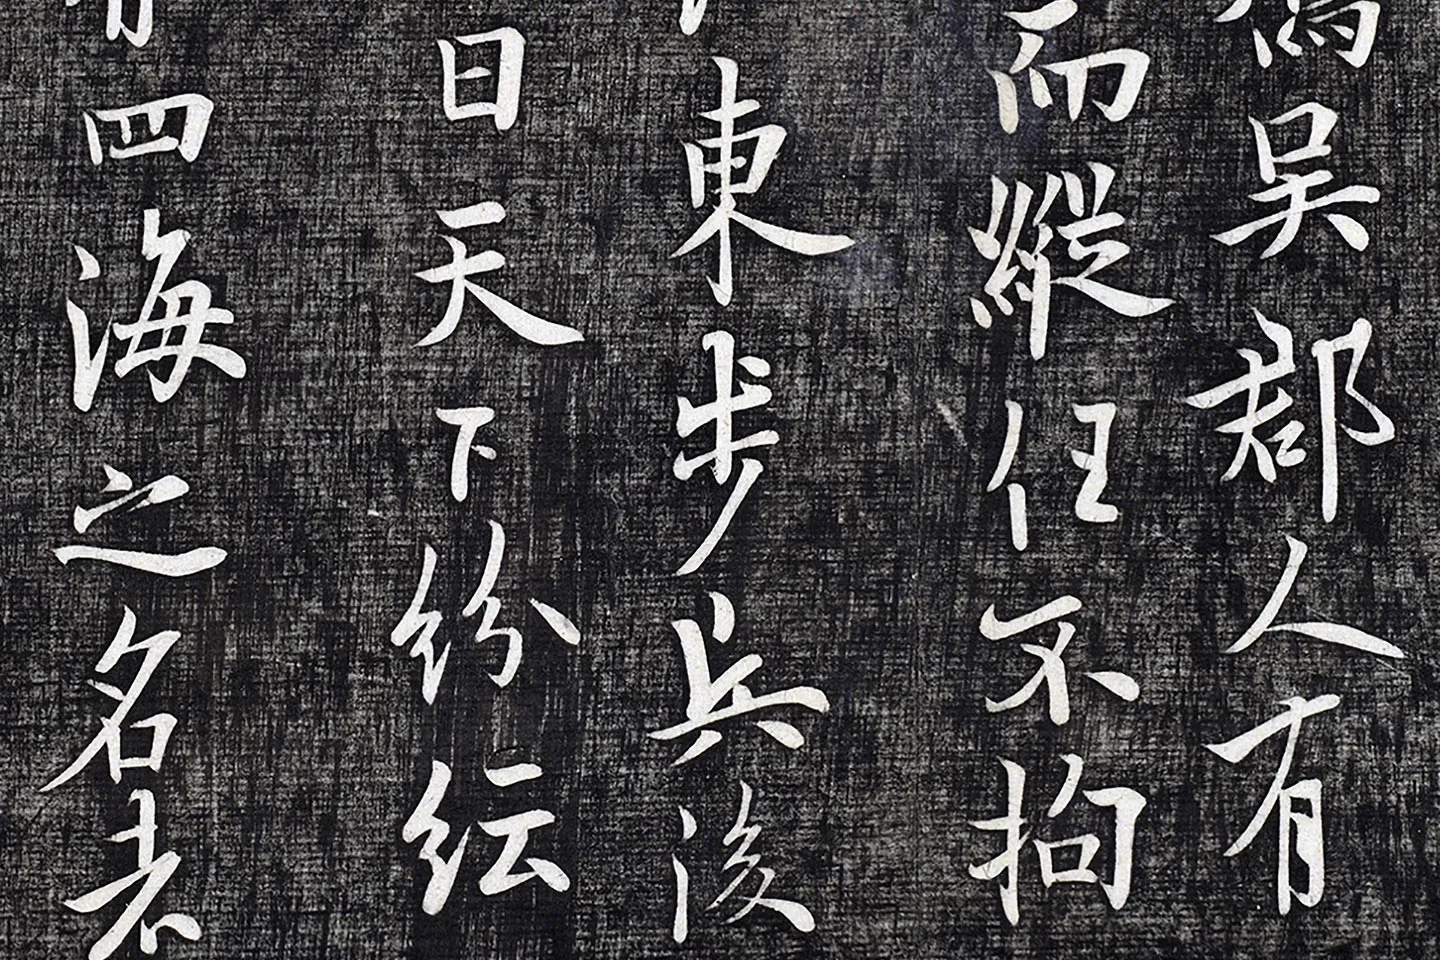 吳郡人有
而縱任不拘
東步兵後
日天下紛紜
四海之名者